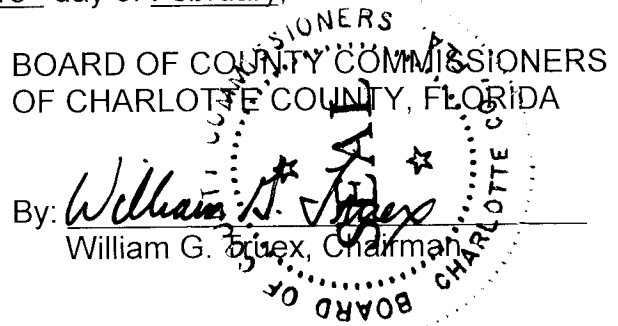 day of February,
BOARD OF COUNTY COMMISSIONERS
OF CHARLOTTE COUNTY, FLORIDA
By: William G. Truex
William G. Truex, Chairman
BOARD OF COUNTY COMMISSIONERS
CHARLOTTE CO.
SEAL